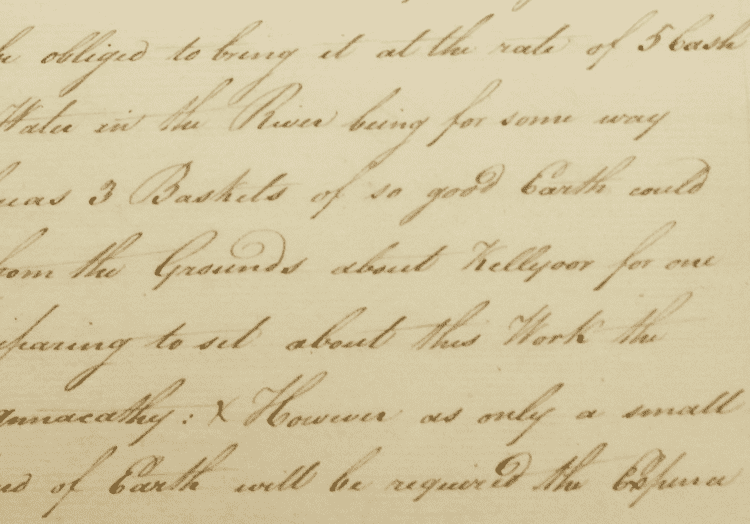 obliged to bring it at the rate of 5 Cash
Water in the River being for some way
3 Baskets of so good Earth could
the Grounds about Kellyoor for one
to set about this Work the
However as only a small
of Earth will be required the Expence